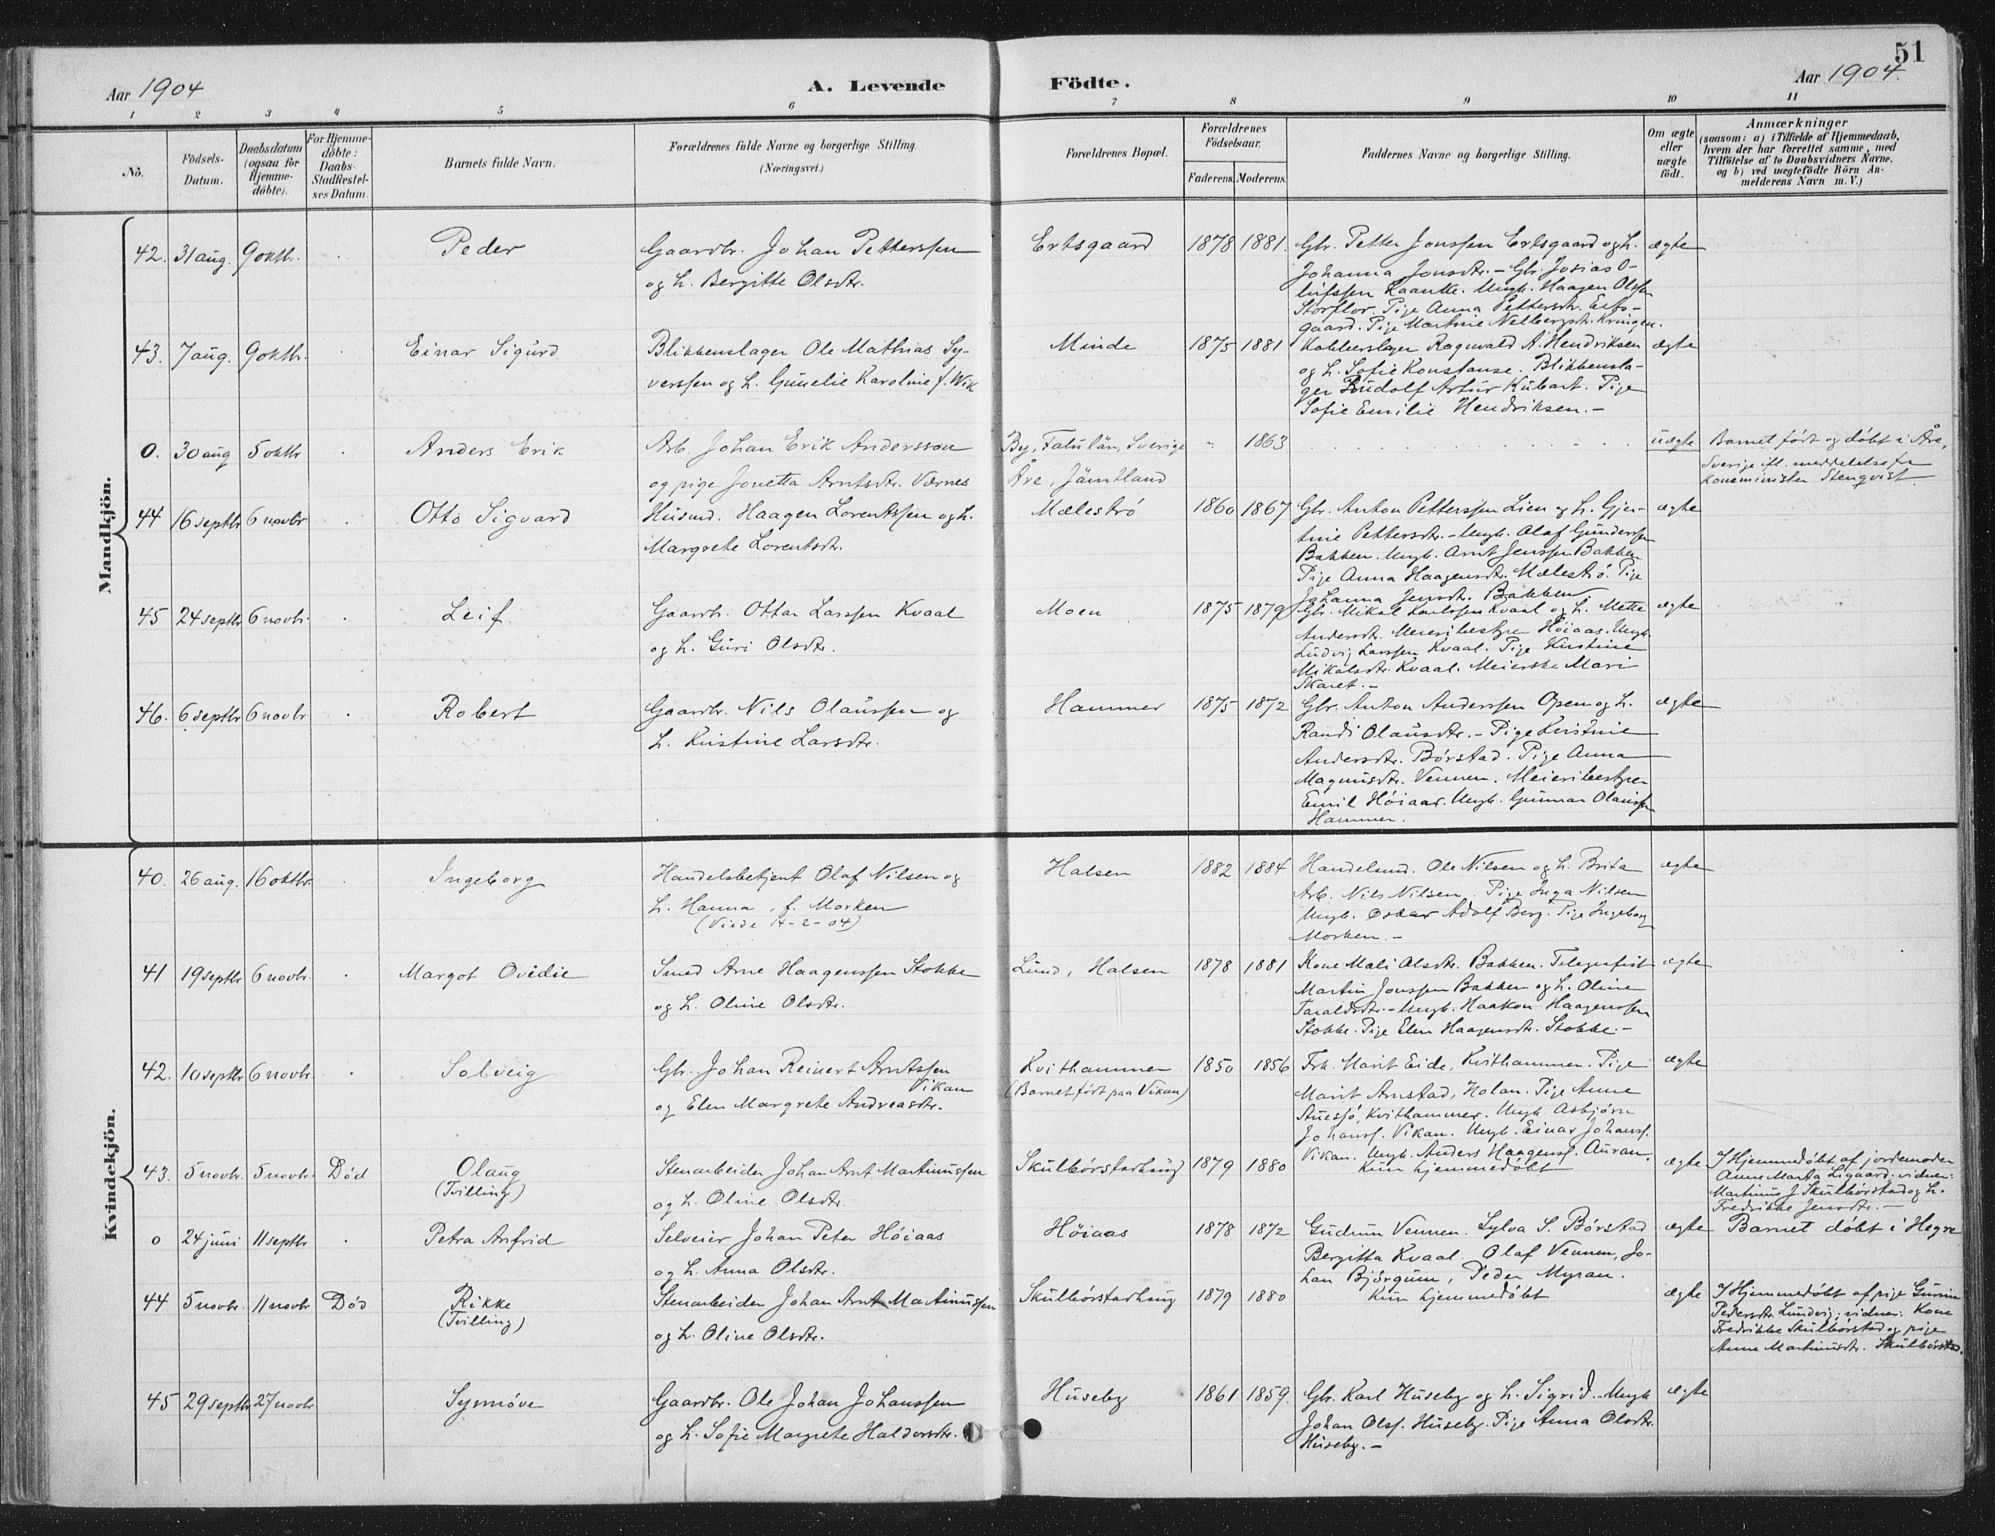 51
Aar 1904
A. Levende Födte.
Aar 1904.
1 2 3 4 5 6 7 8 9 10 11
No.
Födsels-
Datum.
Daabsdatum
(ogsaa for
Hjemme-
döbte).
For Hjemme-
döbte:
Daabs-
Stadfæstel-
ses Datum.
Barnets fulde Navn.
Forældrenes fulde Navne og borgerlige Stilling.
(Næringsvei.)
Forældrenes Bopæl.
Forældrenes
Födselsaar.
Faderens. Moderens.
Faddernes Navne og borgerlige Stilling.
Om ægte
eller
uægte
födt.
Anmærkninger
(saasom: a) i Tilfælde af Hjemmedaab,
hvem der har forrettet samme, med
Tilföielse af to Daabsvidners Navne,
og b) ved uægtefödte Börn An-
melderens Navn m. V.)
Mandkjön.
42. 31 aug. 9 oktbr. Peder
Gaardbr. Johan Petterssen
og h. Bergitte Olsdtr.
Ertsgaard 1878 1881.
Gbr. Petter Jonssen Ertsgaard og h.
Johanna Jonsdtr. – Gbr. Josias O-
lufssen Raanke. Ungk. Haagen Olssen
Storflor. Pige Anna Pettersdtr. Erts-
gaard. Pige Martine Kringen.
ægte
43. 7 aug. 9 oktbr. Einar Sigurd
Blikkenslager Ole Mathias Sy-
verssen og h. Gunelie Karoline f. Wik
Minde 1875 1881
Kobberslager Ragnvald A. Hendriksen
og h. Sofie Konstanse. Blikkensla-
ger Rudolf Artur Kubart. Pige
Sofie Emilie Hendriksen. –
ægte
0. 30 aug 5 oktbr Anders Erik
Arb. Johan Erik Andersson
og pige Jonetta Arntsdtr. Værnes
By, Falulän, Sverige
Åre, Jämtland
- 1863
uægte
Barnet født og døbt i Åre,
Sverige ifl. meddelelse fra
Komminister Stenqvist
44 16 septbr 6 novbr Otto Sigvard
Husmd. Haagen Lorentssen og h.
Margrete Lorentsdtr.
Mælestrø 1860 1867
Gbr. Anton Petterssen Lien og h. Gjer-
tine Pettersdtr. – Ungk. Olaf Gunderssen
Bakken. Ungk. Arnt Jenssen Bakken
Pige Anna Haagensdtr. Mælestrø. Pige
Johanna Jensdtr. Bakken
ægte
45 24 septbr 6 novbr. Leif
Gaardbr. Ottar Larssen Kvaal
og h. Guri Olsdtr.
Moen 1875 1879
Gbr. Mikal Karlssen Kvaal og h. Mette
Andersdtr. Meieribestyrer Høiaas. Ungk.
Ludvig Larssen Kvaal. Pige Kirstine
Mikalsdtr. Kvaal. Meierske Mari
Skaret. –
ægte
46. 6 septbr 6 novbr Robert
Gaardbr. Nils Olaussen og
h. Kristine Larsdtr.
Hammer 1875 1872
Gbr. Anton Anderssen Opem og h.
Randi Olausdtr. – Pige Kristine
Andersdtr. Børstad. Pige Anna
Magnusdtr. Vennen. Meieribestyrer
Emil Høiaas. Ungk. Gunnar Olaussen
Hammer.
ægte
Kvindekjön.
40. 26 aug. 16 oktbr. Ingeborg
Handelsbetjent Olaf Nilsen og
h. Hanna, f. Morken
(Viede 14-2-04)
Halsen 1882 1884
Handelsmd. Ole Nilsen og h. Brita
Arb. Nils Nilsen. Pige Inga Nilsen
Ungk. Oskar Adolf Berg. Pige Ingeborg
Morken. –
ægte
41 19 septbr 6 novbr. Margot Ovidie
Smed Arne Haagenssen Stokke
og h. Oline Olsdtr.
Lund, Halsen 1878 1881
Kone Mali Olsdtr. Bakken. Telegrafist
Martin Jonssen Bakken og h. Oline
Taraldsdtr. – Ungk. Haakon Haagenssen
Stokke. Pige Elen Haagensdtr. Stokke. –
ægte
42. 10 septbr 6 novbr. Solveig
Gbr. Johan Reinert Arntssen
Vikan
og Elen Margrete Andreasdtr.
Kvithammer
(Barnet født paa Vikan)
1850 1856
Frk. Marit Eide, Kvithammer. Pige
Marit Arnstad, Holan. Pige Anne
Stuesjø, Kvithammer. Ungk. Asbjørn
Johanss. Vikan. Ungk. Einar Johanss.
Vikan. Ungk. Anders Haagenss. Auran.
ægte
43. 5 novbr. 5 novbr. Død Olaug
(Tvilling)
Stenarbeider Johan Arnt Martinussen
og h. Oline Olsdtr.
Skulbørstadhaug 1879 1880
Kun hjemmedøbt
ægte
Hjemmedøbt af jordemoder
Anne Marta Ligaard. vidner:
Martinus J. Skulbørstad og h.
Fredrikke Jensdtr. –
0 24 juni 11 septbr Petra Arfrid
Selveier Johan Peter Høiaas
og h. Anna Olsdtr.
Høiaas 1878 1872
Gudrun Vennen. Sylva S. Børstad
Bergitta Kvaal. Olaf Vennen, Jo-
han Bjørgum, Peder Myran.
ægte
Barnet døbt i Hegre
44 5 novbr. 11 novbr Død Rikke
(Tvilling)
Stenarbeider Johan Arnt Martinussen
og h. Oline Olsdtr.
Skulbørstadhaug 1879 1880
Kun hjemmedøbt
ægte
Hjemmedøbt af pige
Pedersdtr. Lundvig; vidner: Kone
Fredrikke Skulbørstad og pige
Anne Martinusdtr. Skulbørstad.
45 29 septbr 27 novbr Synnøve
Gaardbr. Ole Johan Johanssen
og h. Sofie Margrete Haldorsdtr.
Huseby 1861 1859.
Gbr. Karl Huseby og h. Sigrid. – Ungk
Johan Olss. Huseby. Pige Anna Olsdtr.
Huseby. –
ægte